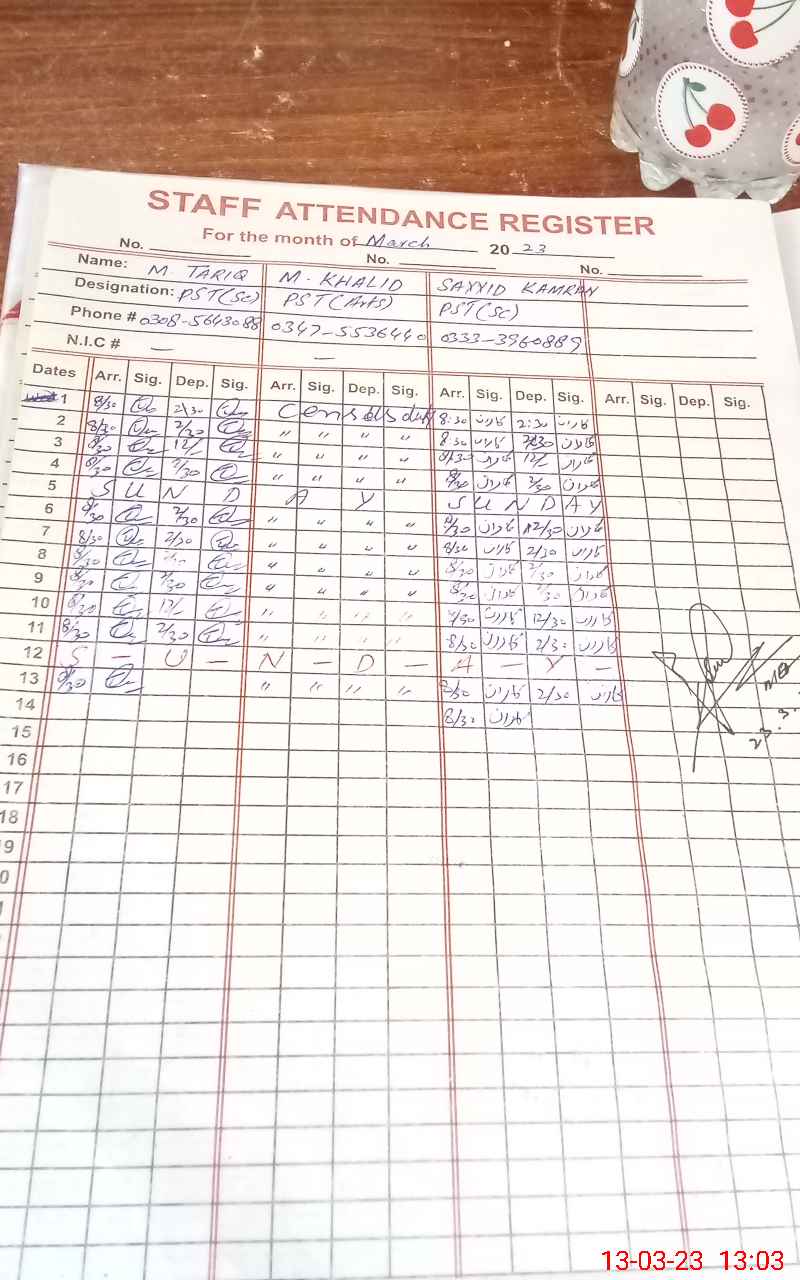 STAFF ATTENDANCE REGISTER
For the month of March 2023
No. No. No.
Name: M. TARIQ M. KHALID SAYYID KAMRAN
Designation: PST(Sc) PST(Arts) PST(SC)
Phone # 0308-5643088 0347-5536440 0333-3960889
N.I.C # — —
Dates Arr. Sig. Dep. Sig. Arr. Sig. Dep. Sig. Arr. Sig. Dep. Sig. Arr. Sig. Dep. Sig.
1 8/30 2/30 Census duty 8:30 کامران 2:30 کامران
2 8/30 2/30 " " " " 8:30 کامران 2/30 کامران
3 8/30 12/ " " " " 8/30 کامران 12/ کامران
4 8/30 2/30 " " " " 8/30 کامران 2/30 کامران
5 S U N D A Y S U N D A Y
6 8/30 2/30 " " " " 8/30 کامران 2/30 کامران
7 8/30 2/30 " " " " 8/30 کامران 2/30 کامران
8 8/30 " " " " 8/30 کامران 2/30 کامران
9 8/30 2/30 " " " " 8/30 کامران 2/30 کامران
10 8/30 12/ " " " " 8/30 کامران 12/30 کامران
11 8/30 2/30 " " " " 8/30 کامران 2/30 کامران
12 S — U — N — D — A — Y —
13 8/30 " " " " 8/30 کامران 2/30 کامران
14 8/30 کامران
15
16
17
18
9
0
13-03-23 13:03